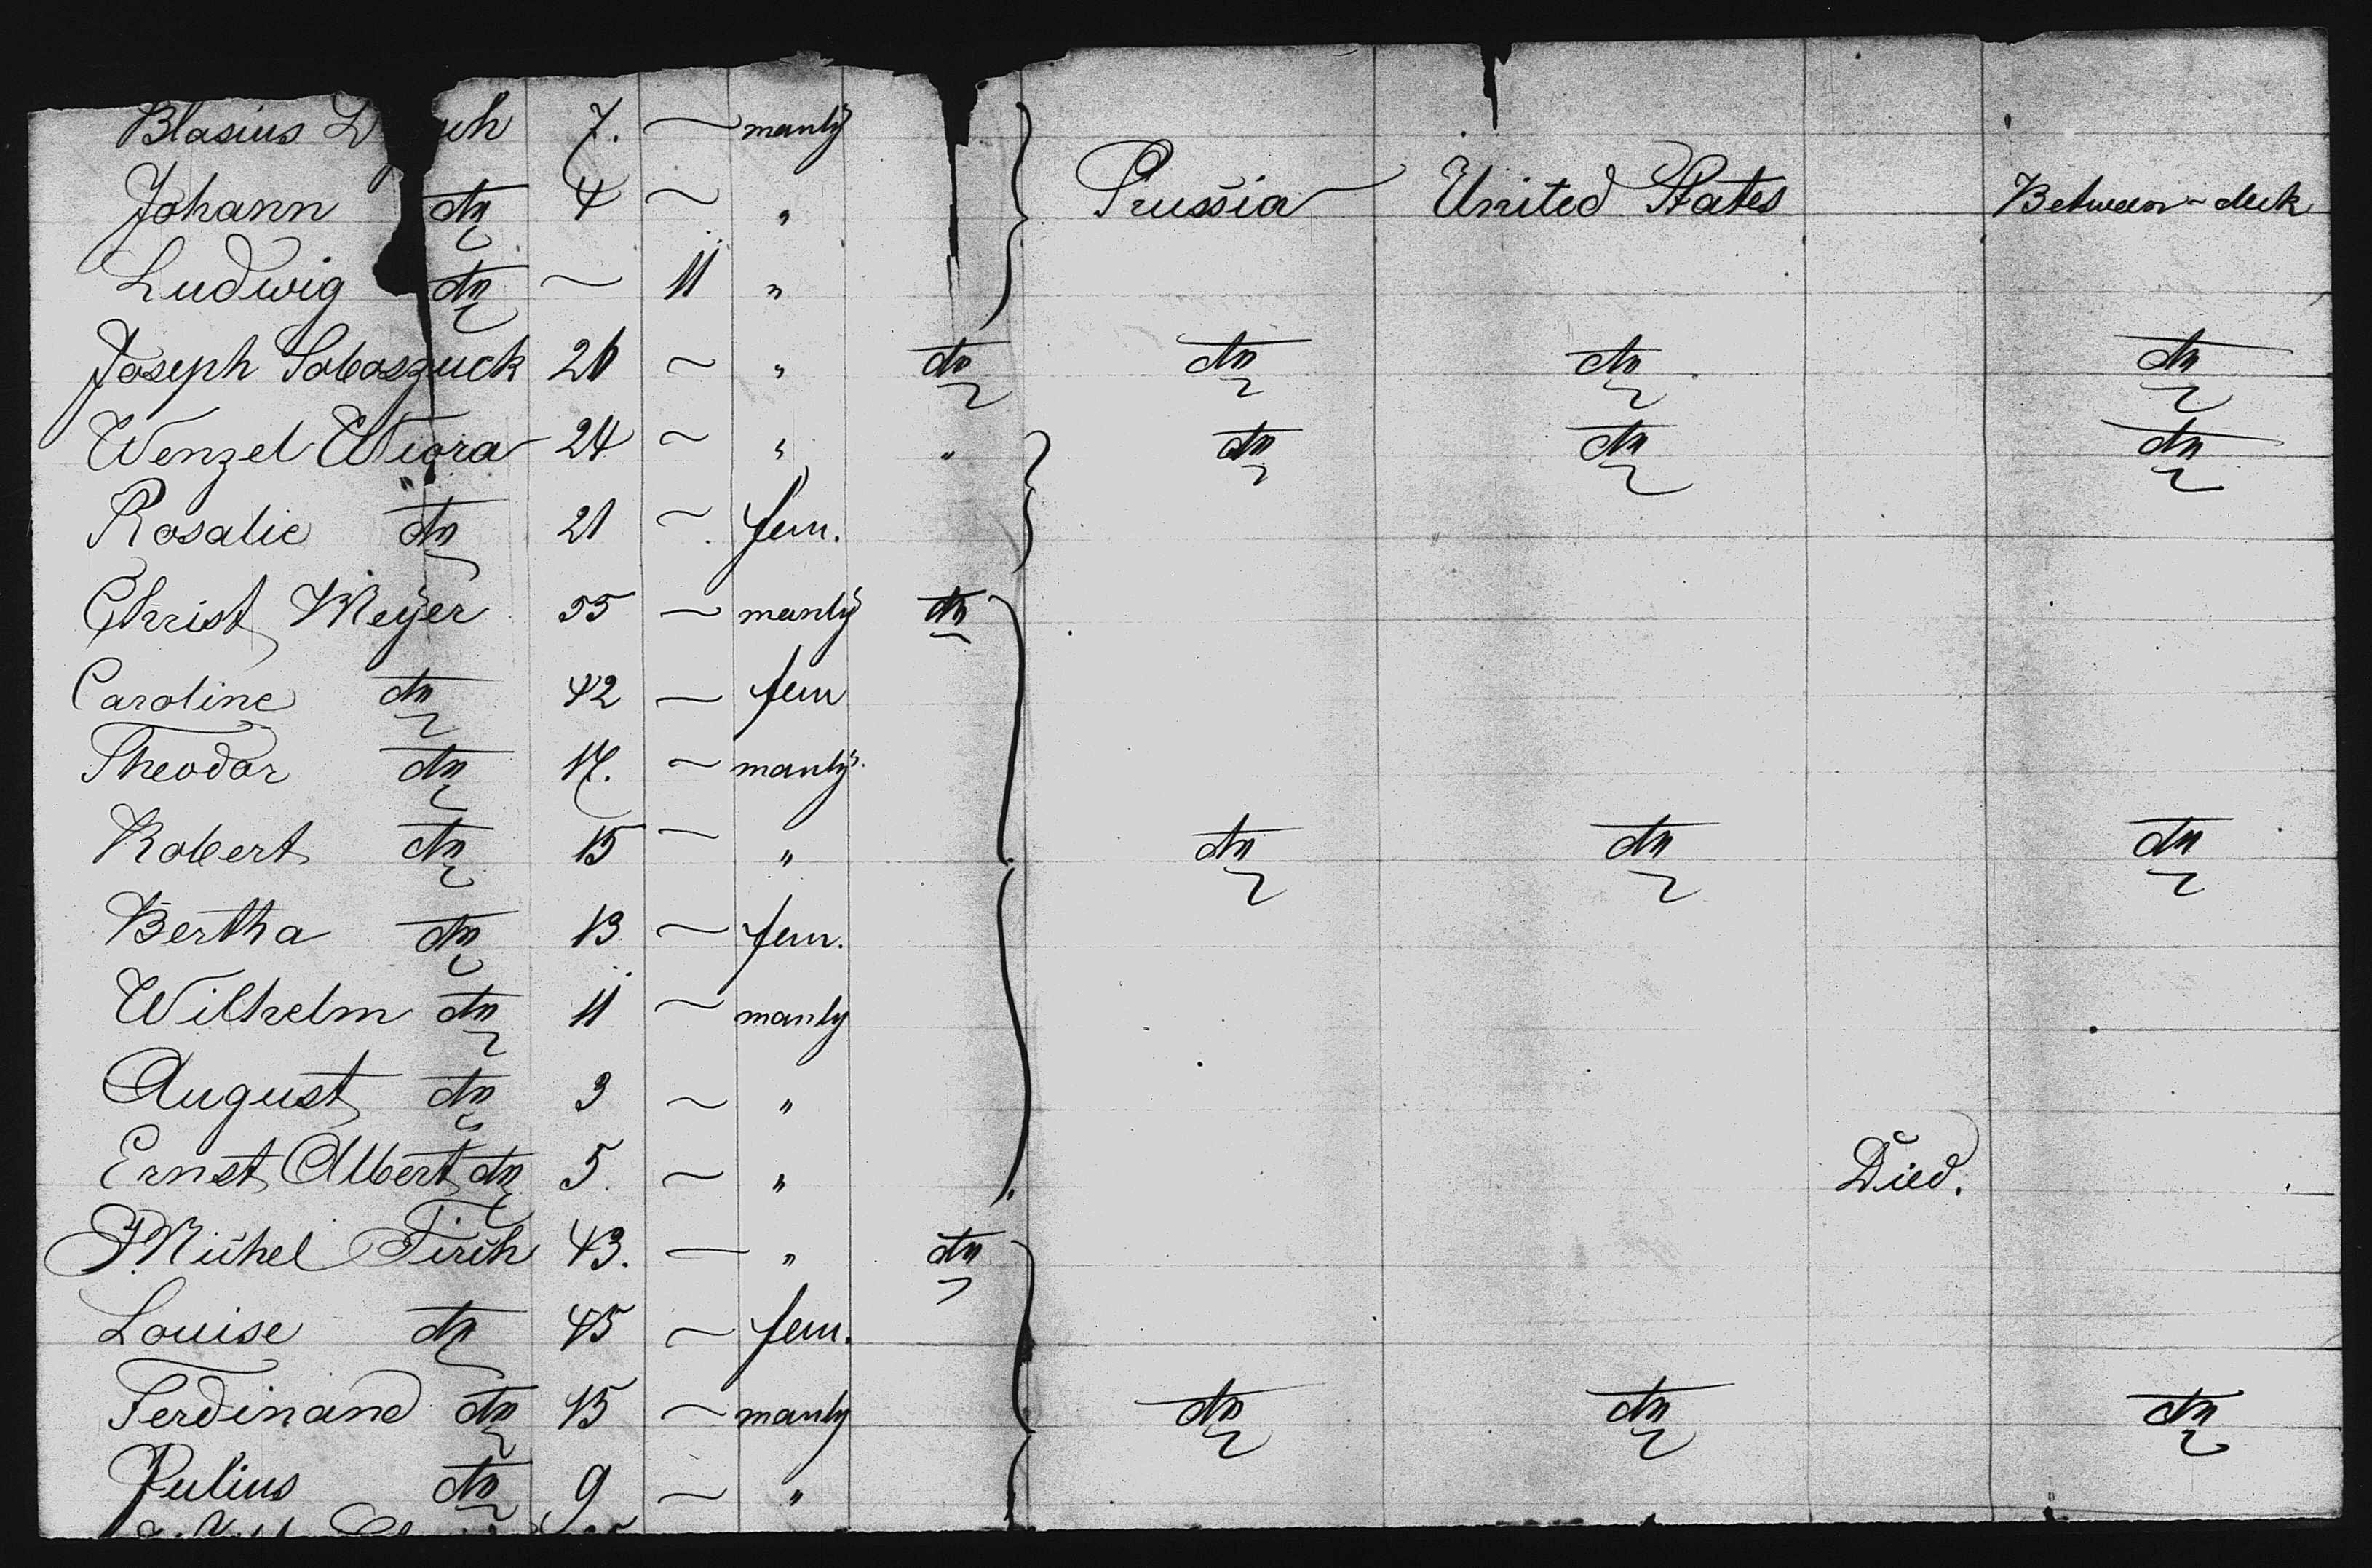 Blasius 7. — manly
Johann do 4 — " Prussia United States Between-deck
Ludwig do — 11 "
Joseph Soboszuck 26 — " do do do do
Wenzel Wiora 24 — " " do do do
Rosalie do 21 — fem.
Christ Meÿer 55 — manly do
Caroline do 42 — fem
Theodor do 17. — manly
Robert do 15 — " do do do
Bertha do 13 — fem.
Wilhelm do 11 — manly
August do 9 — "
Ernst Albert do 5. — " Died.
Michel Firch 43. — " do
Louise do 45 — fem.
Ferdinand do 15 — manly do do do
Julius do 9 — "